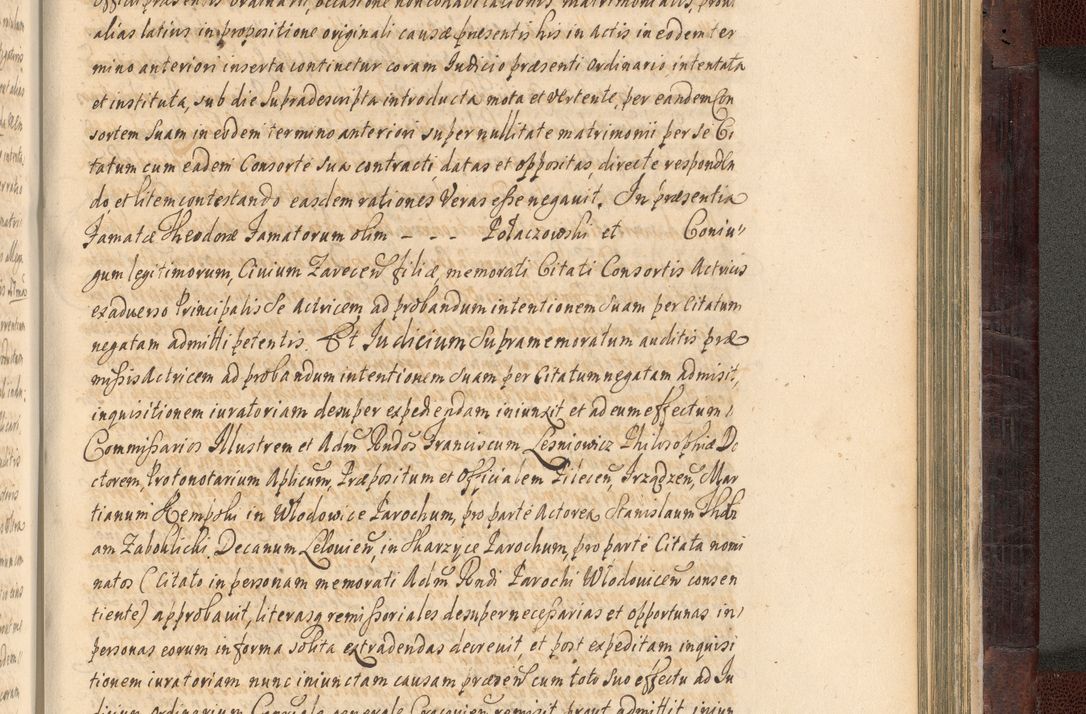 Officii præsentis Ordinarii, occasione non cohabitationis matrimonialis, prout
alias latius in propositione originali causæ præsentis hîs in actis in eodem ter
mino anteriori inserta continetur coram Iudicio præsenti Ordinario intentata
et instituta, sub die supradescripta introducta mota et vertente, per eandem Con
sortem Suam in eodem termino anteriori super nullitate matrimonii per se Ci
tatum cum eadem Consorte sua contracti datas et oppositas, directe responden
do et litem contestando easdem rationes Veras esse negavit. In præsentia
Famatæ Theodoræ Famatorum olim - - - Polaczowski et Coniu"
gum legitimorum, Civium Zarecen filiæ memorati Citati Consortis Actricis
ex adverso Principalis se Actricem ad probandum intentionem suam per Citatum
negatam admitti petentis. Et Iudicium Supramemoratum auditis præ
missis Actricem ad probandum intentionem suam per Citatum negatam admisit,
inquisitionem iuratoriam desuper expediendam iniunxit et ad eum effectum
Commissarios Illustrem et Adm Rndos Franciscum Lesniowicz Philosophiæ Do
ctorem, Protonotarium Aplicum, Præpositum et Officialem Pilecen, Irządzen, Mar
tianum Kempski in Wlodowice Parochum, pro parte Actorea, Stanislaum
am Zaboklicki Decanum Lelovien, in Skarzyce Parochum, pro parte Citata nomi
natos (Citato in personam memorati Adm Rndi Parochi Wlodovicen consen
tiente) approbavit, literasq remissoriales desuper necessarias et opportunas in
personas eorum in forma solita extradendas decrevit et post expeditam inquisi
tionem iuratoriam nunc iniunctam causam præsen cum toto suo effectu ad Iu
dicium Ordinarium Consule generale Cracovien remisit prout admittit iniun